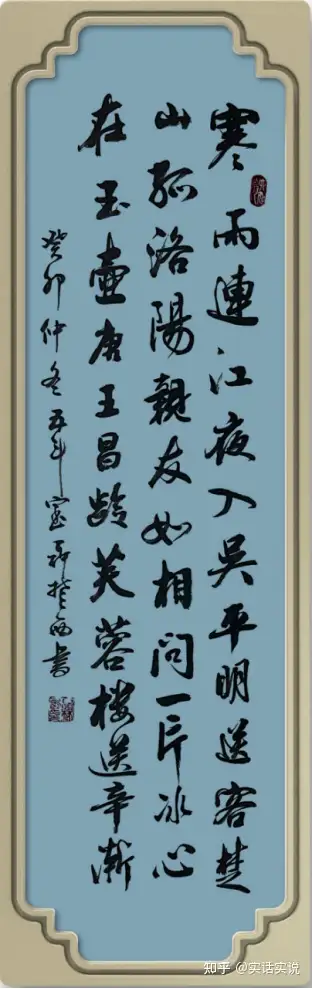 寒雨連江夜入吳平明送客楚
山孤洛陽親友如相問一片冰心
在玉壺唐王昌齡芙蓉樓送辛漸
癸卯仲冬五斗室書
知乎 @实话实说